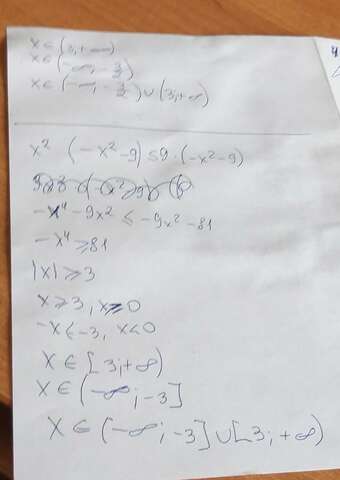 x ∈ (3; +∞)
x ∈ (-∞; -3/2)
x ∈ (-∞; -3/2) ∪ (3; +∞)
x² (-x² - 9) ≤ 9 · (-x² - 9)
-x⁴ - 9x² ≤ -9x² - 81
-x⁴ ≥ 81
|x| ≥ 3
x ≥ 3, x ≥ 0
-x ≤ -3, x < 0
x ∈ [3; +∞)
x ∈ (-∞; -3]
x ∈ (-∞; -3] ∪ [3; +∞)